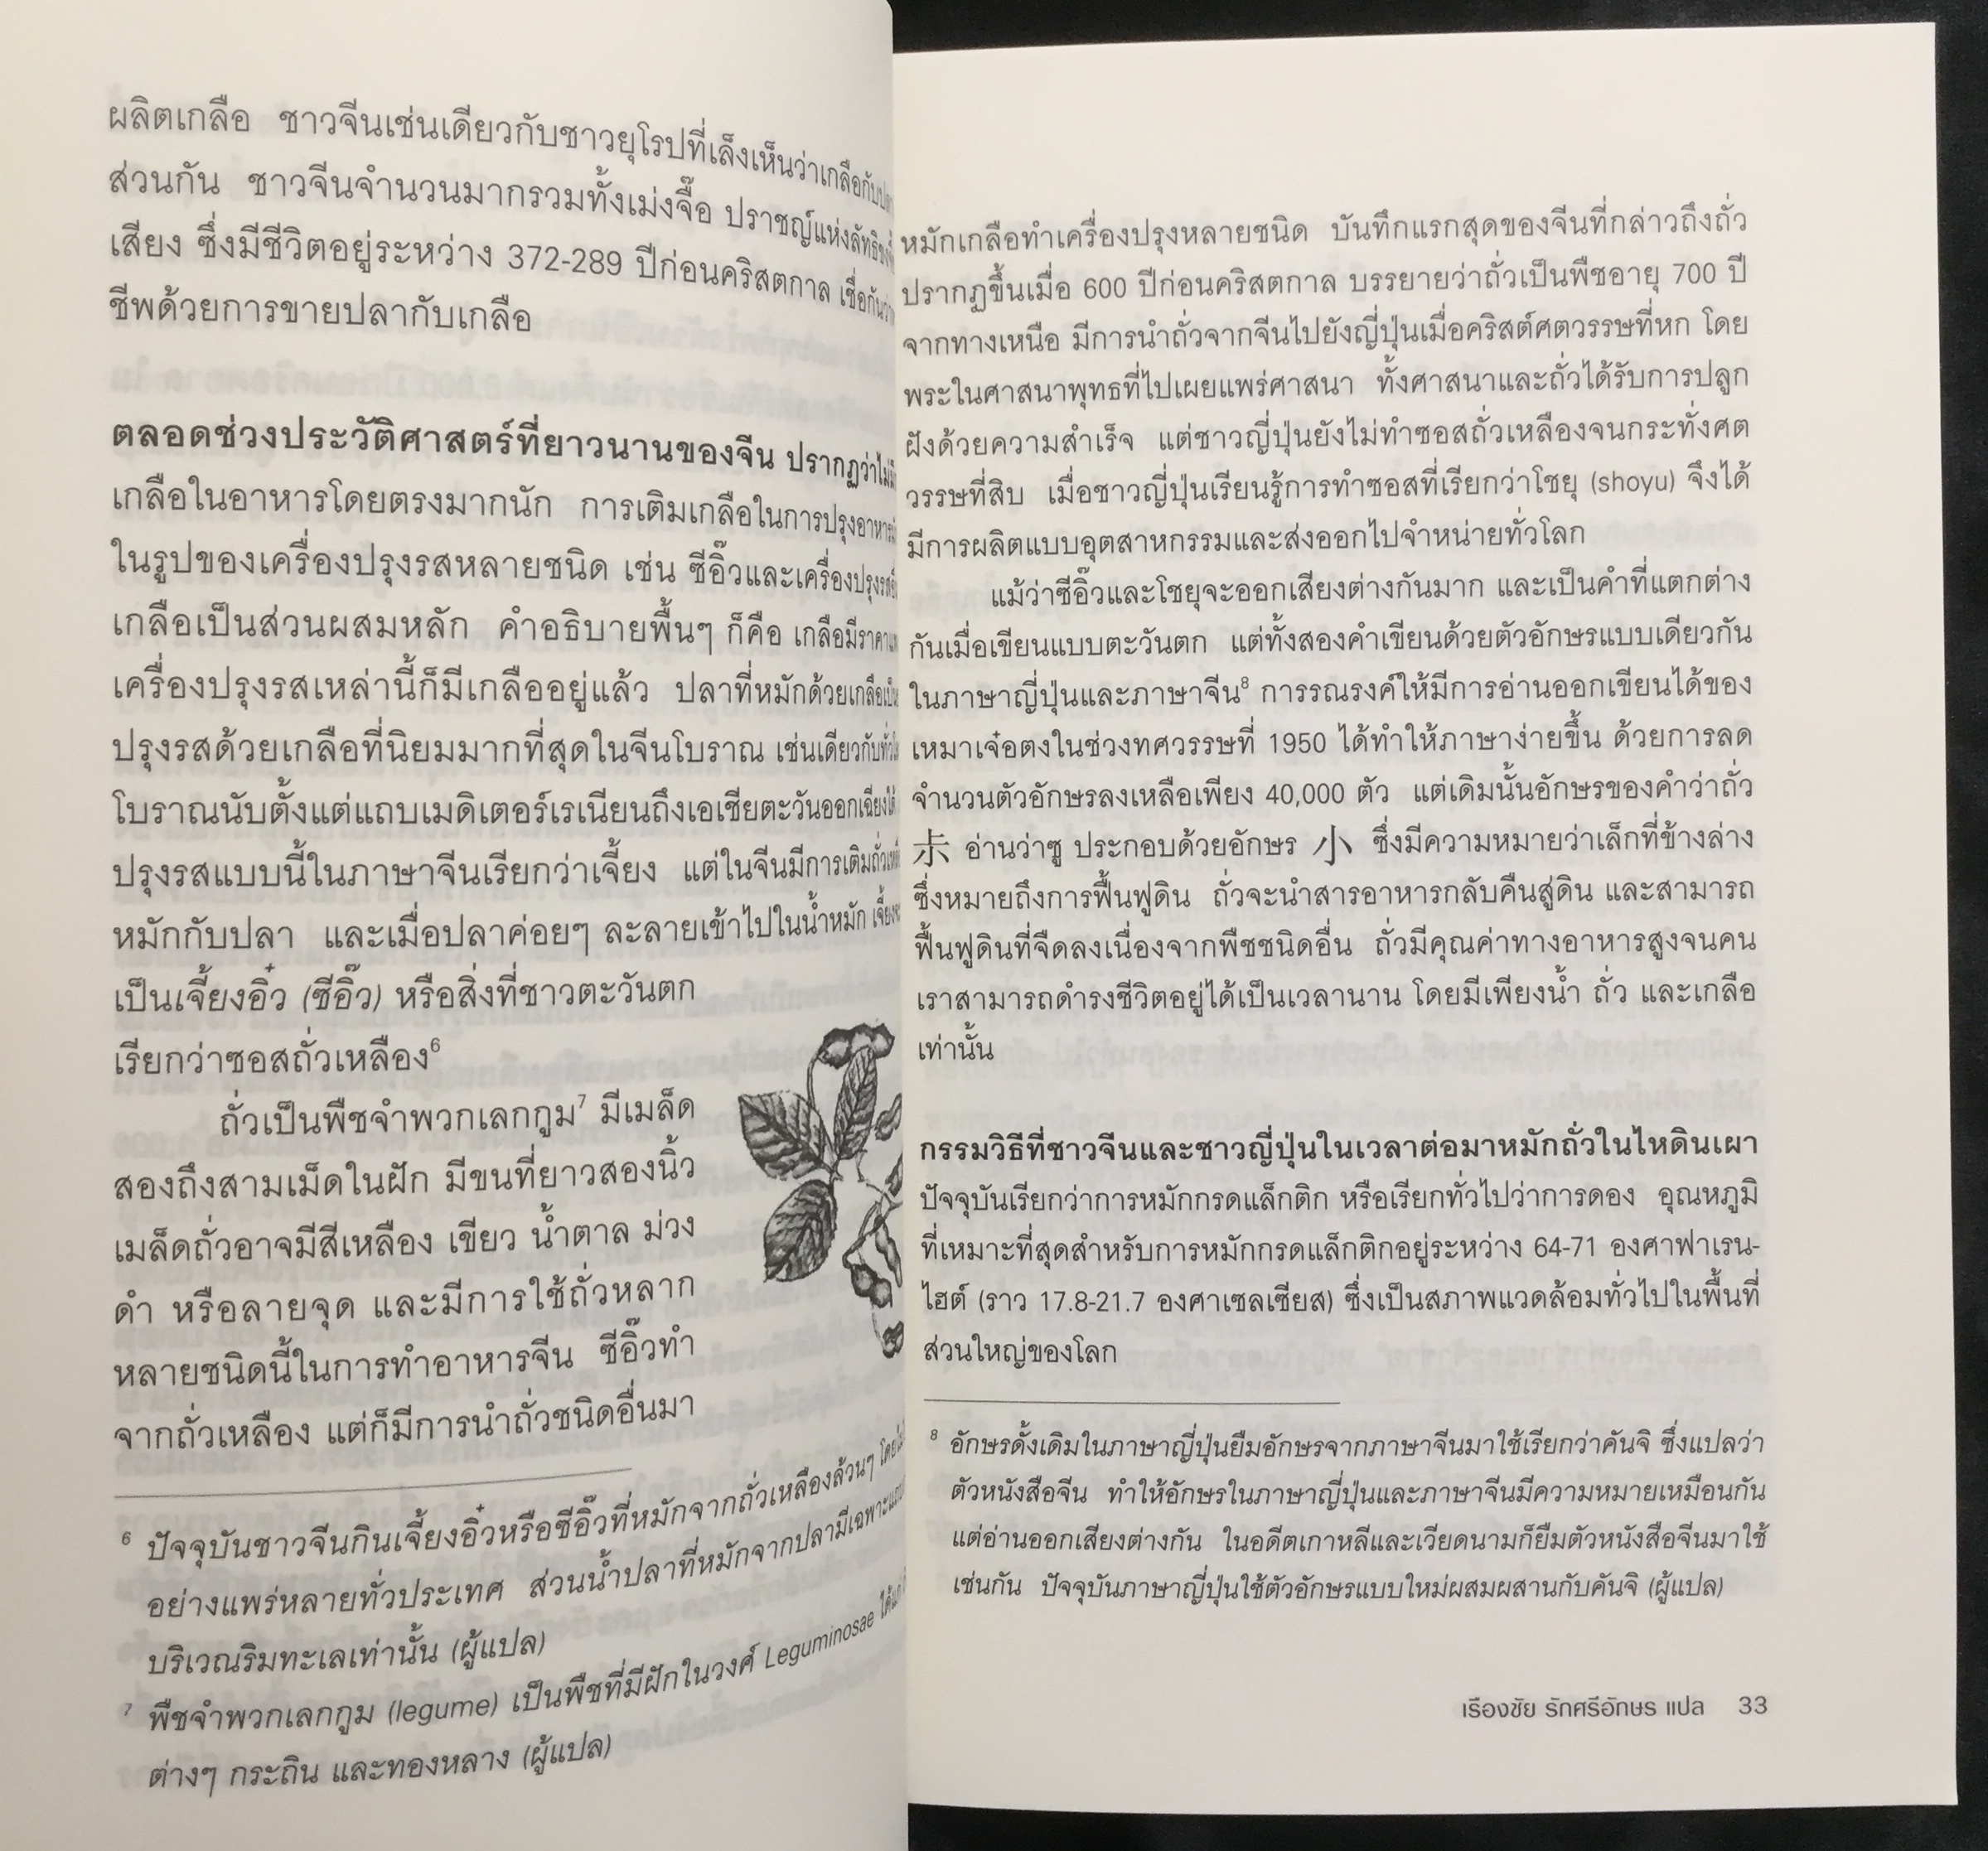 ผลิตเกลือ ชาวจีนเช่นเดียวกับชาวยุโรปที่เล็งเห็นว่าเกลือกับ
ส่วนกัน ชาวจีนจำนวนมากรวมทั้งเม่งจื๊อ ปราชญ์แห่งลัทธิขงจื๊
เสียง ซึ่งมีชีวิตอยู่ระหว่าง 372-289 ปีก่อนคริสตกาล เชื่อกันว่า
ชีพด้วยการขายปลากับเกลือ
ตลอดช่วงประวัติศาสตร์ที่ยาวนานของจีน ปรากฏว่า
เกลือในอาหารโดยตรงมากนัก การเติมเกลือในการปรุงอาหาร
ในรูปของเครื่องปรุงรสหลายชนิด เช่น ซีอิ๊วและเครื่องปรุงรส
เกลือเป็นส่วนผสมหลัก คำอธิบายพื้นๆ ก็คือ เกลือมีราคา
เครื่องปรุงรสเหล่านี้ก็มีเกลืออยู่แล้ว ปลาที่หมักด้วยเกลือ
ปรุงรสด้วยเกลือที่นิยมมากที่สุดในจีนโบราณ เช่นเดียวกับ
โบราณนับตั้งแต่แถบเมดิเตอร์เรเนียนถึงเอเชียตะวันออกเฉียงใต้
ปรุงรสแบบนี้ในภาษาจีนเรียกว่าเจี้ยง แต่ในจีนมีการเติม
หมักกับปลา และเมื่อปลาค่อยๆ ละลายเข้าไปในน้ำหมัก
เป็นเจี้ยงอิ๋ว (ซีอิ๊ว) หรือสิ่งที่ชาวตะวันตก
เรียกว่าซอสถั่วเหลือง⁶
ถั่วเป็นพืชจำพวกเลกกูม⁷ มีเมล็ด
สองถึงสามเม็ดในฝัก มีขนที่ยาวสองนิ้ว
เมล็ดถั่วอาจมีสีเหลือง เขียว น้ำตาล ม่วง
ดำ หรือลายจุด และมีการใช้ถั่วหลาก
หลายชนิดนี้ในการทำอาหารจีน ซีอิ๊วทำ
จากถั่วเหลือง แต่ก็มีการนำถั่วชนิดอื่นมา
⁶ ปัจจุบันชาวจีนกินเจี้ยงอิ๋วหรือซีอิ๊วที่หมักจากถั่วเหลืองล้วนๆ
อย่างแพร่หลายทั่วประเทศ ส่วนน้ำปลาที่หมักจากปลามีเฉพาะ
บริเวณริมทะเลเท่านั้น (ผู้แปล)
⁷ พืชจำพวกเลกกูม (legume) เป็นพืชที่มีฝักในวงศ์ Leguminosae
ต่างๆ กระถิน และทองหลาง (ผู้แปล)
หมักเกลือทำเครื่องปรุงหลายชนิด บันทึกแรกสุดของจีนที่กล่าวถึงถั่ว
ปรากฏขึ้นเมื่อ 600 ปีก่อนคริสตกาล บรรยายว่าถั่วเป็นพืชอายุ 700 ปี
จากทางเหนือ มีการนำถั่วจากจีนไปยังญี่ปุ่นเมื่อคริสต์ศตวรรษที่หก โดย
พระในศาสนาพุทธที่ไปเผยแพร่ศาสนา ทั้งศาสนาและถั่วได้รับการปลูก
ฝังด้วยความสำเร็จ แต่ชาวญี่ปุ่นยังไม่ทำซอสถั่วเหลืองจนกระทั่งศต
วรรษที่สิบ เมื่อชาวญี่ปุ่นเรียนรู้การทำซอสที่เรียกว่าโชยุ (shoyu) จึงได้
มีการผลิตแบบอุตสาหกรรมและส่งออกไปจำหน่ายทั่วโลก
แม้ว่าซีอิ๊วและโชยุจะออกเสียงต่างกันมาก และเป็นคำที่แตกต่าง
กันเมื่อเขียนแบบตะวันตก แต่ทั้งสองคำเขียนด้วยตัวอักษรแบบเดียวกัน
ในภาษาญี่ปุ่นและภาษาจีน⁸ การรณรงค์ให้มีการอ่านออกเขียนได้ของ
เหมาเจ๋อตงในช่วงทศวรรษที่ 1950 ได้ทำให้ภาษาง่ายขึ้น ด้วยการลด
จำนวนตัวอักษรลงเหลือเพียง 40,000 ตัว แต่เดิมนั้นอักษรของคำว่าถั่ว
尗 อ่านว่าซู ประกอบด้วยอักษร 小 ซึ่งมีความหมายว่าเล็กที่ข้างล่าง
ซึ่งหมายถึงการฟื้นฟูดิน ถั่วจะนำสารอาหารกลับคืนสู่ดิน และสามารถ
ฟื้นฟูดินที่จืดลงเนื่องจากพืชชนิดอื่น ถั่วมีคุณค่าทางอาหารสูงจนคน
เราสามารถดำรงชีวิตอยู่ได้เป็นเวลานาน โดยมีเพียงน้ำ ถั่ว และเกลือ
เท่านั้น
กรรมวิธีที่ชาวจีนและชาวญี่ปุ่นในเวลาต่อมาหมักถั่วในไหดินเผา
ปัจจุบันเรียกว่าการหมักกรดแล็กติก หรือเรียกทั่วไปว่าการดอง อุณหภูมิ
ที่เหมาะที่สุดสำหรับการหมักกรดแล็กติกอยู่ระหว่าง 64-71 องศาฟาเรน-
ไฮต์ (ราว 17.8-21.7 องศาเซลเซียส) ซึ่งเป็นสภาพแวดล้อมทั่วไปในพื้นที่
ส่วนใหญ่ของโลก
⁸ อักษรดั้งเดิมในภาษาญี่ปุ่นยืมอักษรจากภาษาจีนมาใช้เรียกว่าคันจิ ซึ่งแปลว่า
ตัวหนังสือจีน ทำให้อักษรในภาษาญี่ปุ่นและภาษาจีนมีความหมายเหมือนกัน
แต่อ่านออกเสียงต่างกัน ในอดีตเกาหลีและเวียดนามก็ยืมตัวหนังสือจีนมาใช้
เช่นกัน ปัจจุบันภาษาญี่ปุ่นใช้ตัวอักษรแบบใหม่ผสมผสานกับคันจิ (ผู้แปล)
เรืองชัย รักศรีอักษร แปล 33